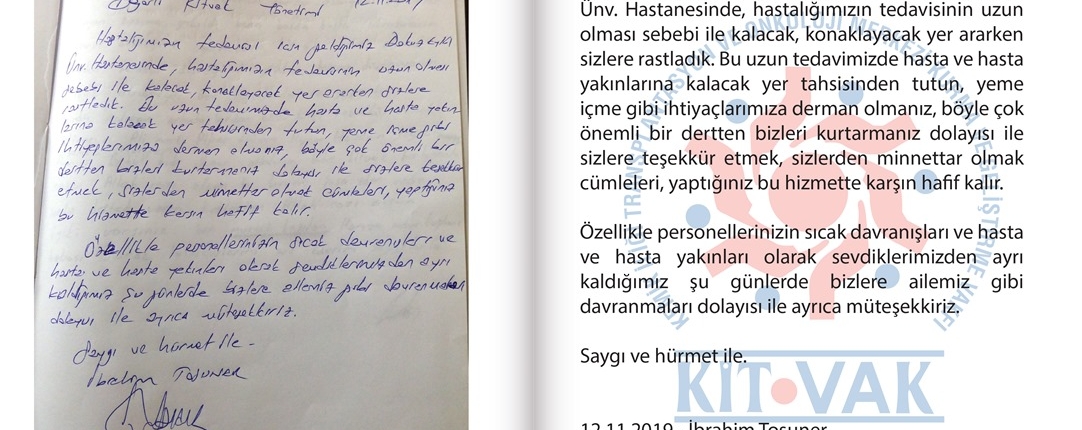 Değerli Kitvak Yönetimi 12.11.2019
Hastalığımızın tedavisi için geldiğimiz Dokuz Eylül
Ünv. Hastanesinde, hastalığımızın tedavisinin uzun olması
sebebi ile kalacak, konaklayacak yer ararken sizlere
rastladık. Bu uzun tedavimizde hasta ve hasta yakın
larına kalacak yer tahsisinden tutun, yeme içme gibi
ihtiyaçlarımıza derman olmanız, böyle çok önemli bir
dertten bizleri kurtarmanız dolayısı ile sizlere teşekkür
etmek, sizlerden minnettar olmak cümleleri, yaptığınız
bu hizmette karşın hafif kalır.
Özellikle personellerinizin sıcak davranışları ve
hasta ve hasta yakınları olarak sevdiklerimizden ayrı
kaldığımız şu günlerde bizlere ailemiz gibi davranmaları
dolayısı ile ayrıca müteşekkiriz.
Saygı ve hürmet ile -
İbrahim TOSUNER
Ünv. Hastanesinde, hastalığımızın tedavisinin uzun
olması sebebi ile kalacak, konaklayacak yer ararken
sizlere rastladık. Bu uzun tedavimizde hasta ve hasta
yakınlarına kalacak yer tahsisinden tutun, yeme
içme gibi ihtiyaçlarımıza derman olmanız, böyle çok
önemli bir dertten bizleri kurtarmanız dolayısı ile
sizlere teşekkür etmek, sizlerden minnettar olmak
cümleleri, yaptığınız bu hizmette karşın hafif kalır.
Özellikle personellerinizin sıcak davranışları ve hasta
ve hasta yakınları olarak sevdiklerimizden ayrı
kaldığımız şu günlerde bizlere ailemiz gibi
davranmaları dolayısı ile ayrıca müteşekkiriz.
Saygı ve hürmet ile.
KİT VAK
12.11.2019 - İbrahim Tosuner
KEMİK İLİĞİ TRANSPLANTASYON VE ONKOLOJİ MERKEZİ KURMA VE GELİŞTİRME VAKFI